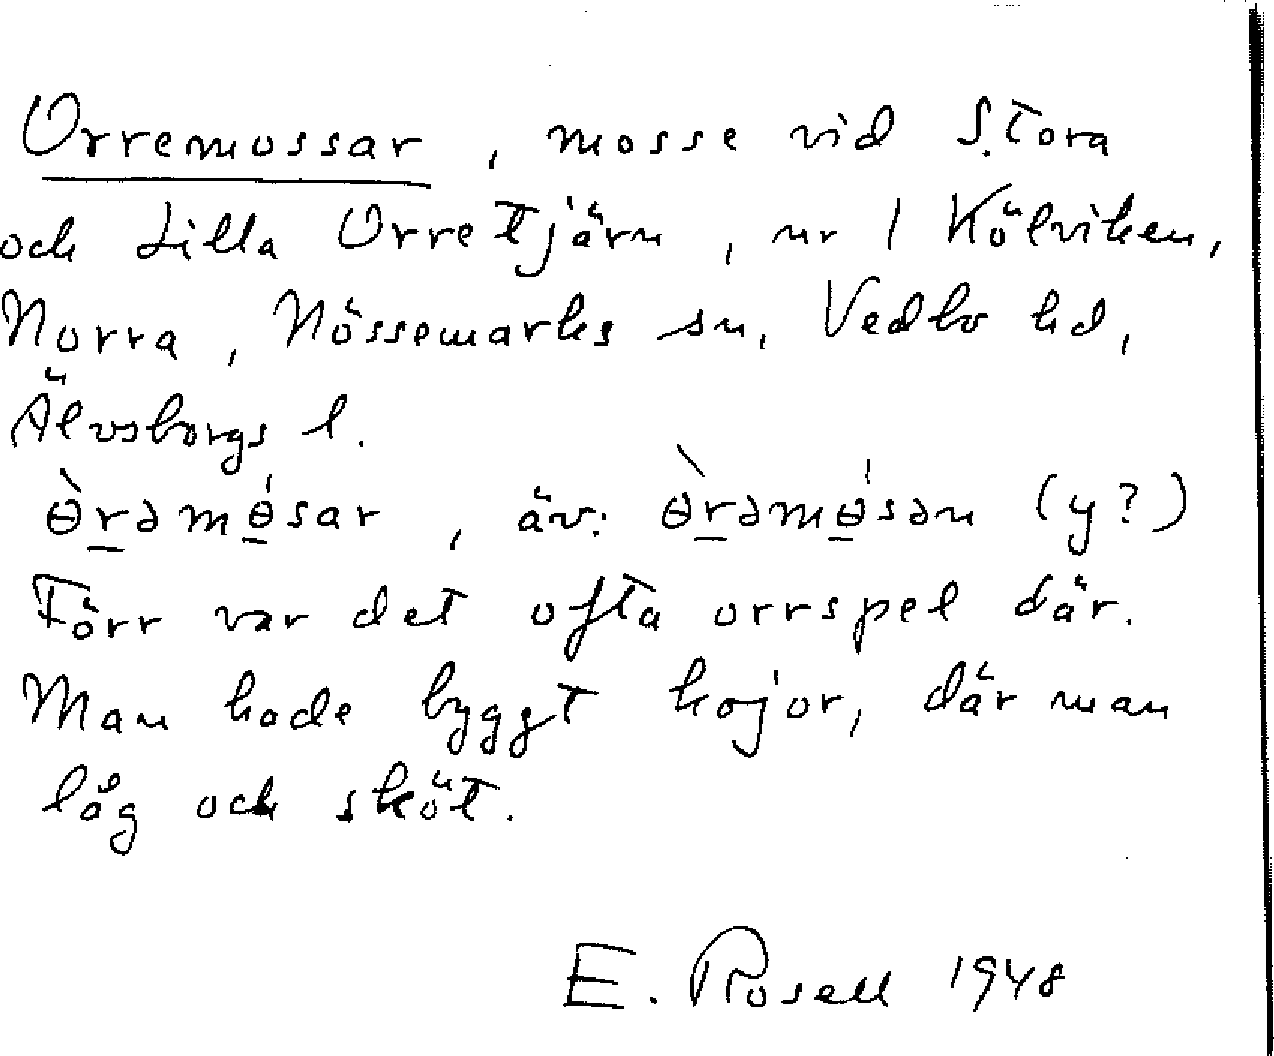 Orremossar, mosse vid Stora
och Lilla Orretjärn, nr 1 Kölviken,
Norra, Nössemarks sn, Vedbo hd,
Älvsborgs l.
ɵ̀rəmɵ́sar, äv. ɵ̀rəmɵ́sən (y?)
Förr var det ofta orrspel där.
Man hade byggt kojor, där man
låg och sköt.
E. Rosell 1948